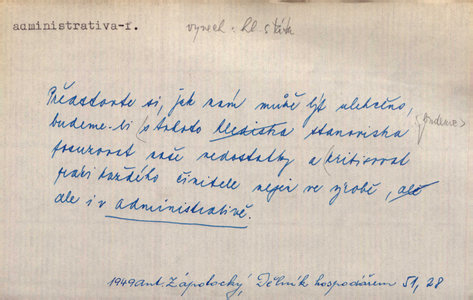 administrativa-f.
vynech: hl. státu
Představte si, jak nám může být ulehčeno,
budeme-li (s tohoto hlediska stanoviska <budeme>
posuzovat naše nedostatky a kritisovat
práci každého činitele nejen ve výrobě, ale
ale i v administrativě.
1949 Ant. Zápotocký, Dělník hospodářem 51, 28